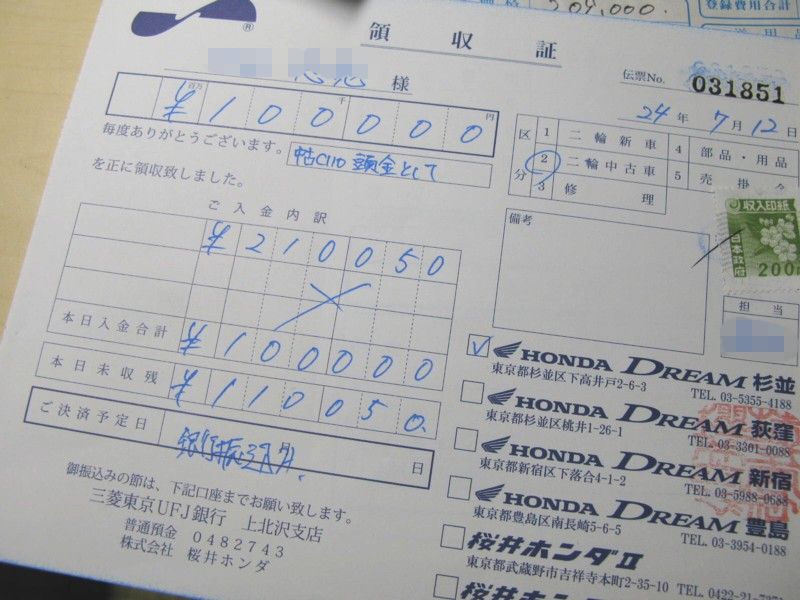 価格 204,000.
登録費用合計
®
領収証
様
伝票No. 031851
24年 7月 12日
百万 千 円
¥1000000
毎度ありがとうございます。
中古C110 頭金として
を正に領収致しました。
区分
1 二輪新車 4 部品・用品
2 二輪中古車 5 売掛金
3 修理
ご入金内訳
¥210050
本日入金合計 ¥100000
本日未収残 ¥110050.
ご決済予定日 銀行振込 月 日
備考
収入印紙
日本政府
200
担当
御振込みの節は、下記口座までお願い致します。
三菱東京UFJ銀行 上北沢支店
普通預金 0482743
株式会社 桜井ホンダ
HONDA DREAM 杉並
東京都杉並区下高井戸2-6-3 TEL. 03-5355-4188
HONDA DREAM 荻窪
東京都杉並区桃井1-26-1 TEL. 03-3301-0088
HONDA DREAM 新宿
東京都新宿区下落合4-1-2 TEL. 03-5988-0688
HONDA DREAM 豊島
東京都豊島区南長崎5-6-5 TEL. 03-3954-0188
桜井ホンダII
東京都武蔵野市吉祥寺本町2-35-10 TEL. 0422-21-
桜井ホンダ